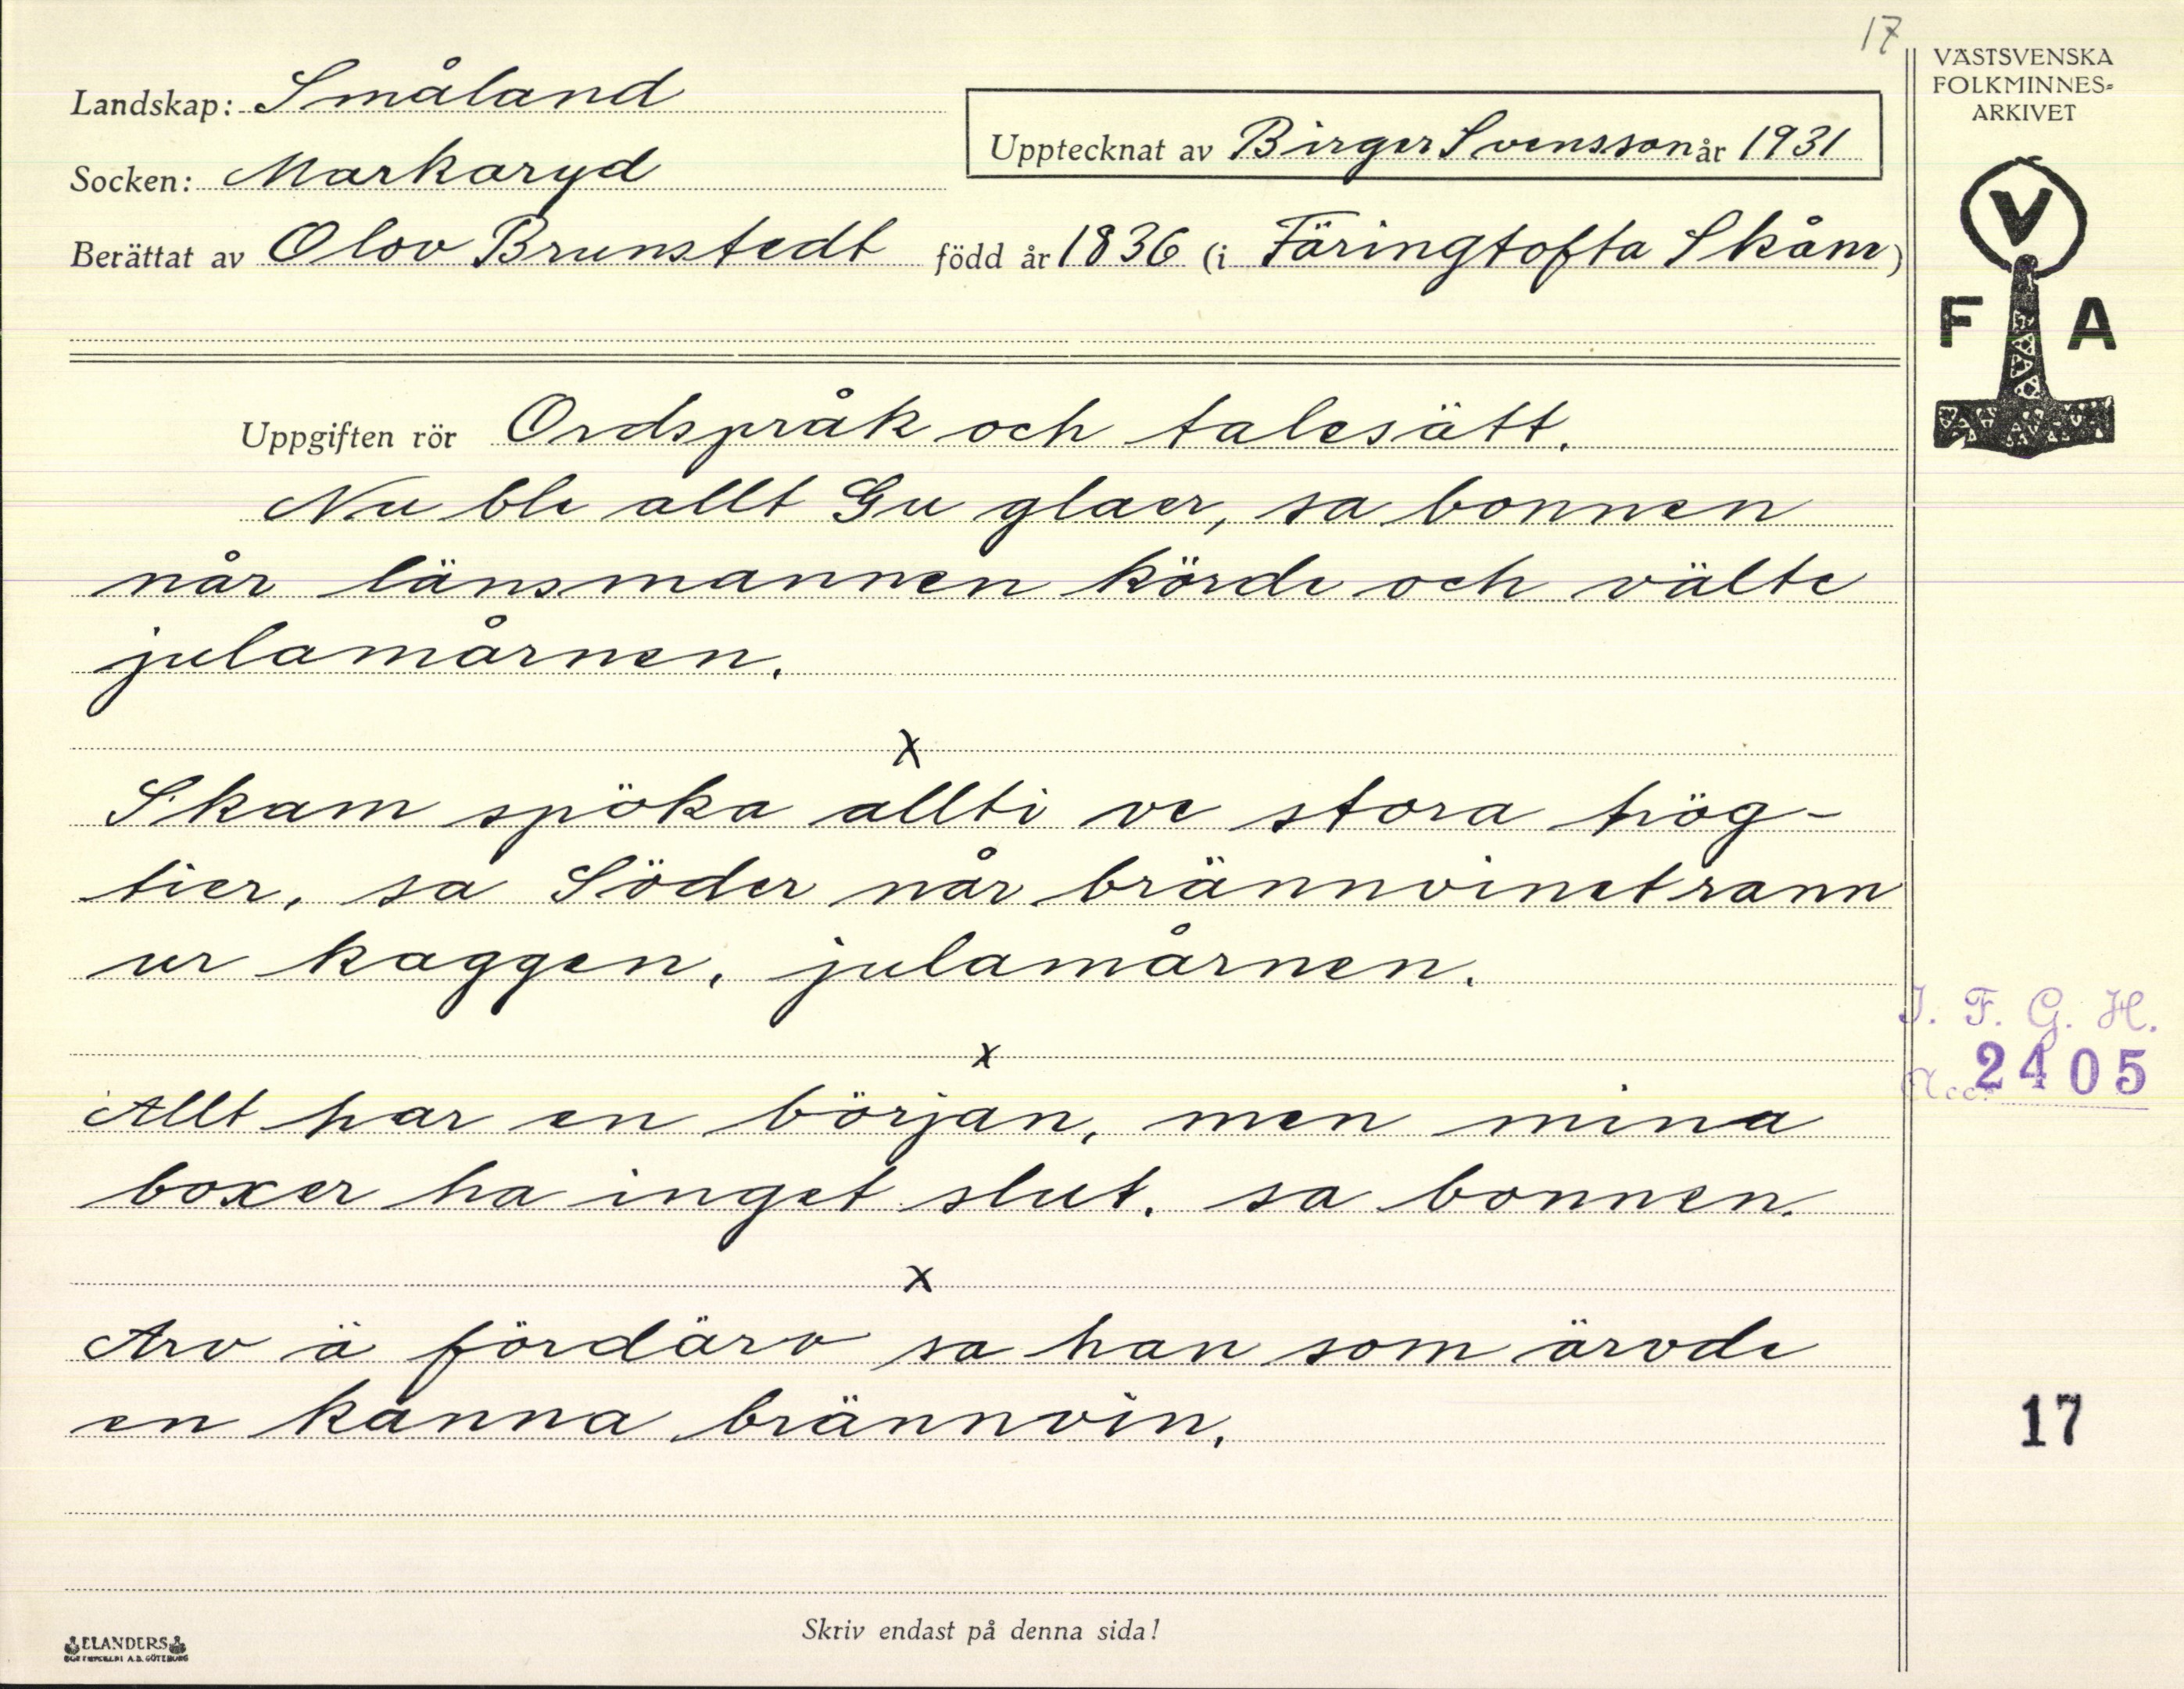 17
VÄSTSVENSKA
FOLKMINNES-
ARKIVET
Landskap: Småland
Upptecknat av Birger Svensson år 1931
Socken: Markaryd
Berättat av Olov Brunstedt född år 1836 (i Färingtofta Skåne)
V
F A
Uppgiften rör Ordspråk och talesätt.
Nu ble allt Gu glaer, sa bonnen
når länsmannen körde och välte
julamårnen.
x
Skam spöka allti ve stora hög-
tier, sa Söder når brännvinet rann
ur kaggen, julamårnen.
x
I. F. G. H.
Acc. 2405
Allt har en början, men mina
boxer ha inget slut, sa bonnen.
x
Arv ä fördärv sa han som ärvde
en kanna brännvin.
17
Skriv endast på denna sida!
ELANDERS
A.B. GÖTEBORG